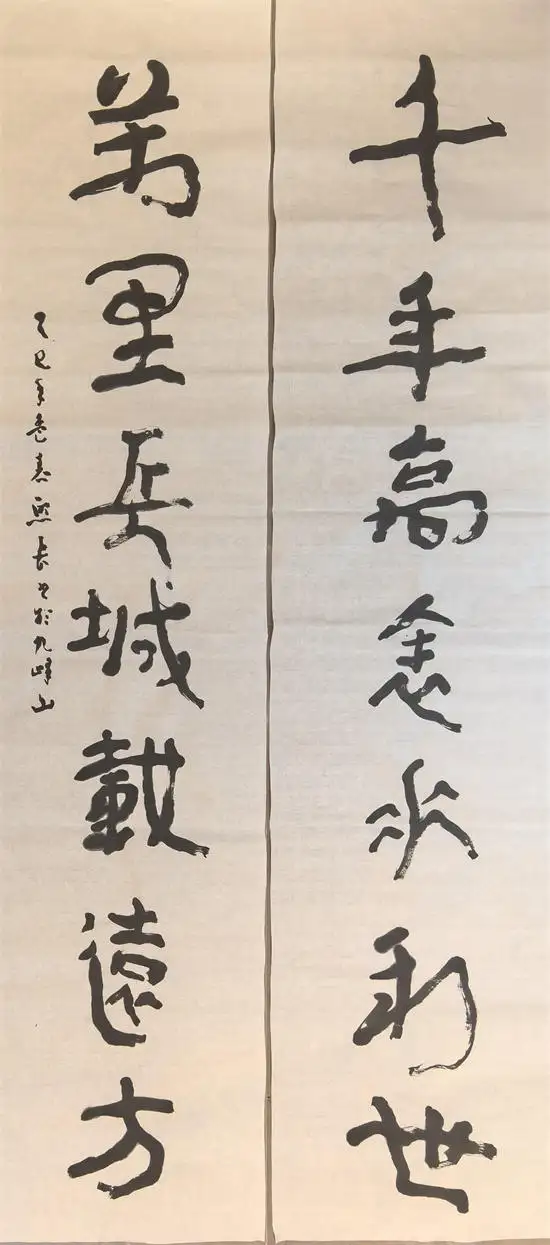 千年高念水利世
萬里長城載遠方
乙巳年春熙长书於九峰山